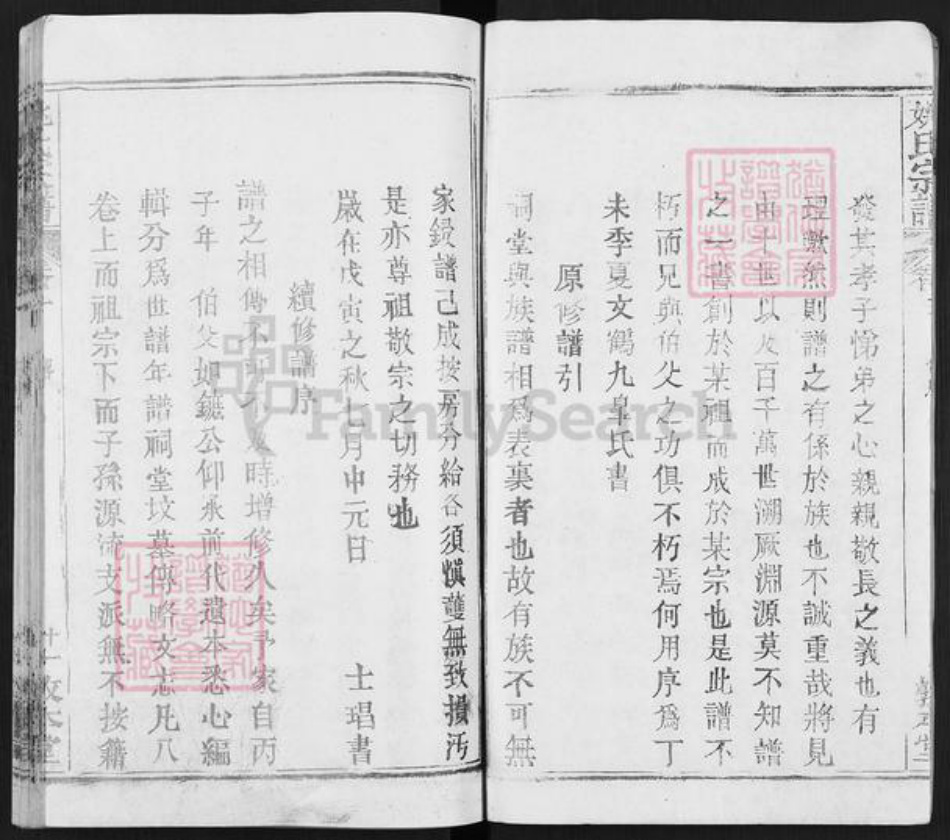 姚氏宗譜
發其孝子悌弟之心親親敬長之義也有
理歟然則譜之有係於族也不誠重哉將見
由十世以及百千萬世溯厥淵源莫不知譜
之一書創於某祖而成於某宗也是此譜不
朽而兄與伯父之功俱不朽焉何用序為丁
未季夏文鶴九皐氏書
原修譜引
祠堂與族譜相為表裏者也故有族不可無
家鋟譜已成按房分給各須慎護無致損污
是亦尊祖敬宗之切務也
歲在戊寅之秋七月中元日 士琩書
續修譜序
譜之相傳不 時增修久矣予家自丙
子年 伯父如鑣公仰承前代遺本悉心編
輯分為世譜年譜祠堂坟墓傳略文志凡八
卷上而祖宗下而子孫源流支派無不按籍
敦本堂
FamilySearch